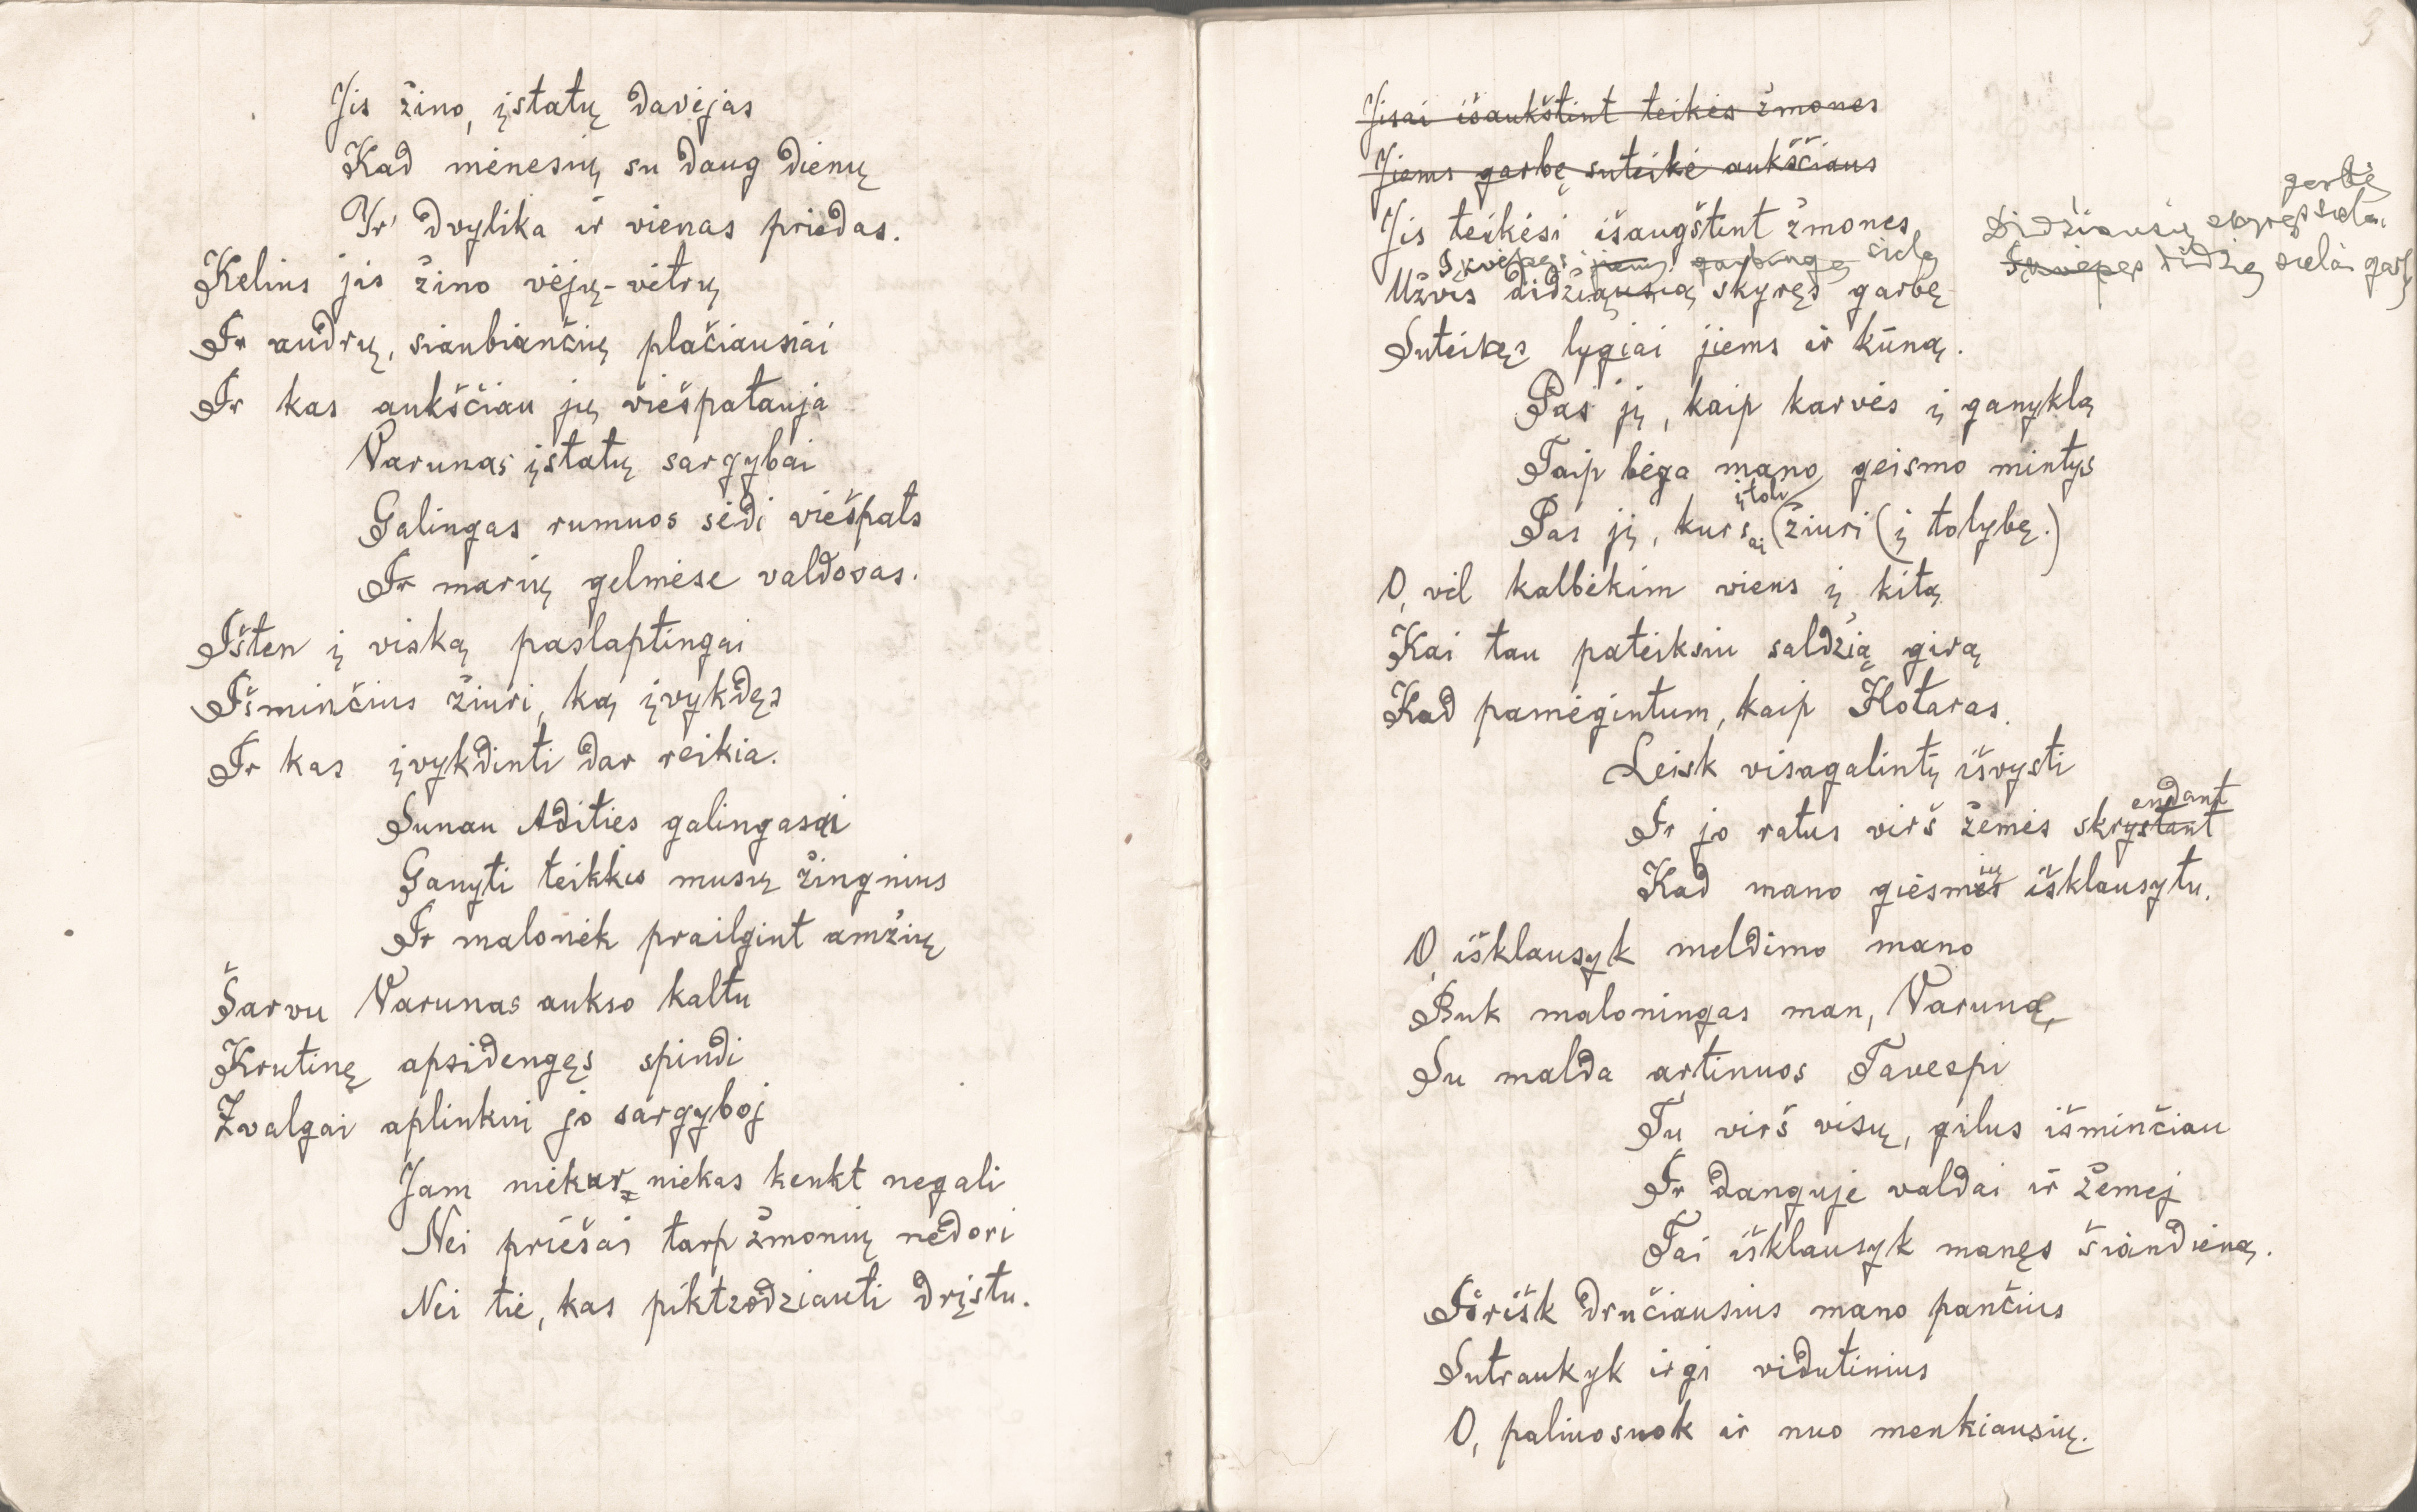 Jis žino, įstatų davėjas
Kad mėnesių su daug dienų
Yr' dvylika ir vienas priedas.
Kelius jis žino vėjų-vėtrų
Ir audrų, siaubiančių plačiausiai
Ir kas aukščiau jų viešpatauja
Varunas įstatų sargybai
Galingas rumuos sėdi viešpats
Ir marių gelmėse valdovas.
Išten į viską paslaptingai
Išminčius žiuri, ką įvykdęs
Ir kas įvykdinti dar reikia.
Sunau Adities galingasai
Ganyti teikkis musų žingnius
Ir malonėk prailgint amžių
Šarvu Varunas aukso kaltu
Krutinę apsidengęs spindi
Žvalgai aplinkui jo sargyboj
Jam niekur niekas kenkt negali
Nei priešai tarp žmonių nedori
Nei tie, kas piktžodžiauti drįstu.
9
Jisai išaukštint teikės žmones
Jiems garbę suteikė aukščiaus
Jis teikėsi išaugštint žmones
garbę
Didžiausių skyręs sielai
Įkvėpęs jiems garbingą sielą
Įkvėpęs didžią sielai garbę
Užvis didžiausią skyręs garbę
Suteikęs lygiai jiems ir kūną.
Pas jį, kaip karvės į ganyklą
Taip bėga mano geismo mintys
į tolį
Pas jį, kursai (žiuri (į tolybę.)
O, vėl kalbėkim viens į kitą
Kai tau pateiksiu saldžią girą
Kad pamėgintum, kaip Hotaras.
Leisk visagalintį išvysti
endant
Ir jo ratus virš žemės skrystant
ių
Kad mano giesmės išklausytu.
O, išklausyk meldimo mano
Buk maloningas man, Varuna,
Su malda artinuos Tavespi
Tu virš visų, gilus išminčiau
Ir danguje valdai ir žemej
Tai išklausyk manęs šiandieną.
Išrišk dručiausius mano pančius
Sutraukyk irgi vidutinius
O, paliuosuok ir nuo menkiausių.